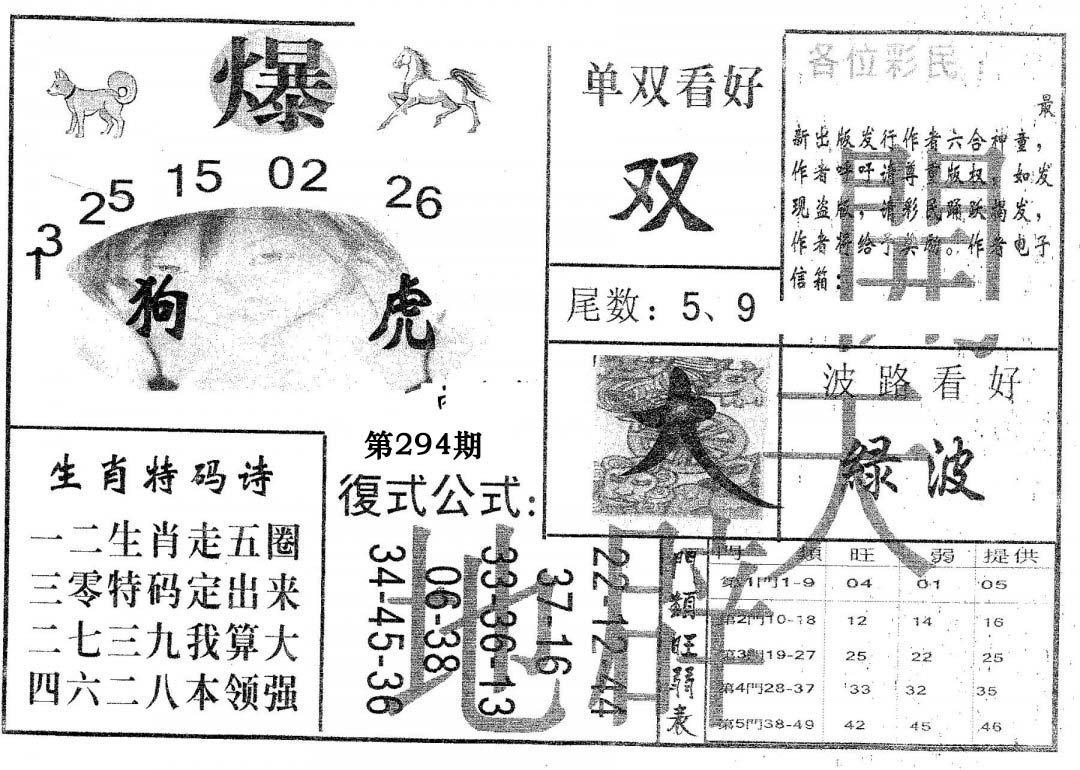 爆
13 25 15 02 26
狗 虎
单双看好
双
尾数：5、9
各位彩民：
最
新出版发行作者六合神童，
作者呼吁请尊重版权，如发
现盗版，请彩民踊跃揭发，
作者将给予奖励。作者电子
信箱：
大
波路看好
绿波
開
天
地
生肖特码诗
一二生肖走五圈
三零特码定出来
二七三九我算大
四六二八本领强
第294期
復式公式：
34-45-36
06-38
33-36-13
37-16
22-12-44
門類旺弱表
門 類 旺 弱 提供
第1門1-9 04 01 05
第2門10-18 12 14 16
第3門19-27 25 22 25
第4門28-37 33 32 35
第5門38-49 42 45 46